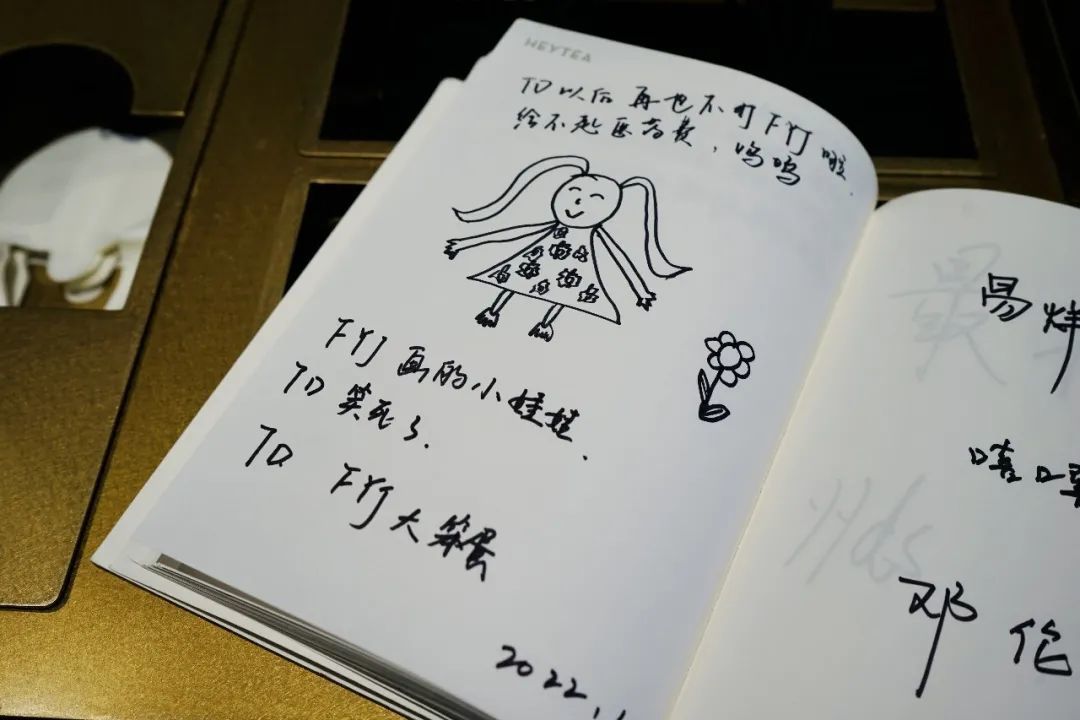 HEYTEA
TD以后再也不打FYJ啦.
给不起医药费，呜呜
FYJ画的小娃娃.
TD笑死了.
TD FYJ大笨蛋
2022.
易烊
嘻嘻
邓伦